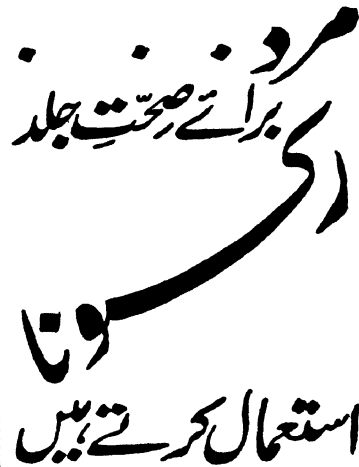 مرد . . .
برائے صحتِ جلد
رکسونا
استعمال کرتے ہیں